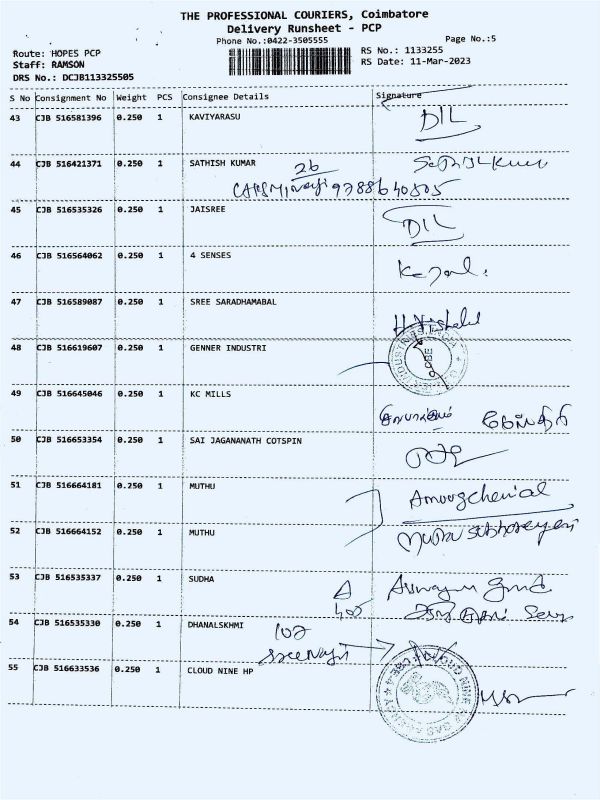 THE PROFESSIONAL COURIERS, Coimbatore
Delivery Runsheet - PCP
Phone No.:0422-3505555
Page No.:5
Route: HOPES PCP
Staff: RAMSON
DRS No.: DCJB113325505
RS No.: 1133255
RS Date: 11-Mar-2023
S No Consignment No Weight PCS Consignee Details Signature
43 CJB 516581396 0.250 1 KAVIYARASU DIL
44 CJB 516421371 0.250 1 SATHISH KUMAR 26
9788640805
45 CJB 516535326 0.250 1 JAISREE DIL
46 CJB 516564062 0.250 1 4 SENSES
47 CJB 516589087 0.250 1 SREE SARADHAMABAL
48 CJB 516619607 0.250 1 GENNER INDUSTRI
49 CJB 516645046 0.250 1 KC MILLS
50 CJB 516653354 0.250 1 SAI JAGANANATH COTSPIN
51 CJB 516664181 0.250 1 MUTHU
52 CJB 516664152 0.250 1 MUTHU
53 CJB 516535337 0.250 1 SUDHA A
54 CJB 516535330 0.250 1 DHANALSKHMI 102
55 CJB 516633536 0.250 1 CLOUD NINE HP